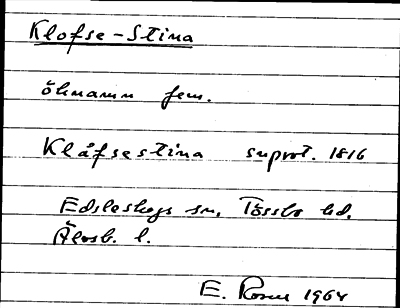 Klofse-Stina
öknamn fem.
Klåfsestina suprot. 1816
Edsleskogs sn, Tössbo hd.
Älvsb. l.
E. Rosen 1964